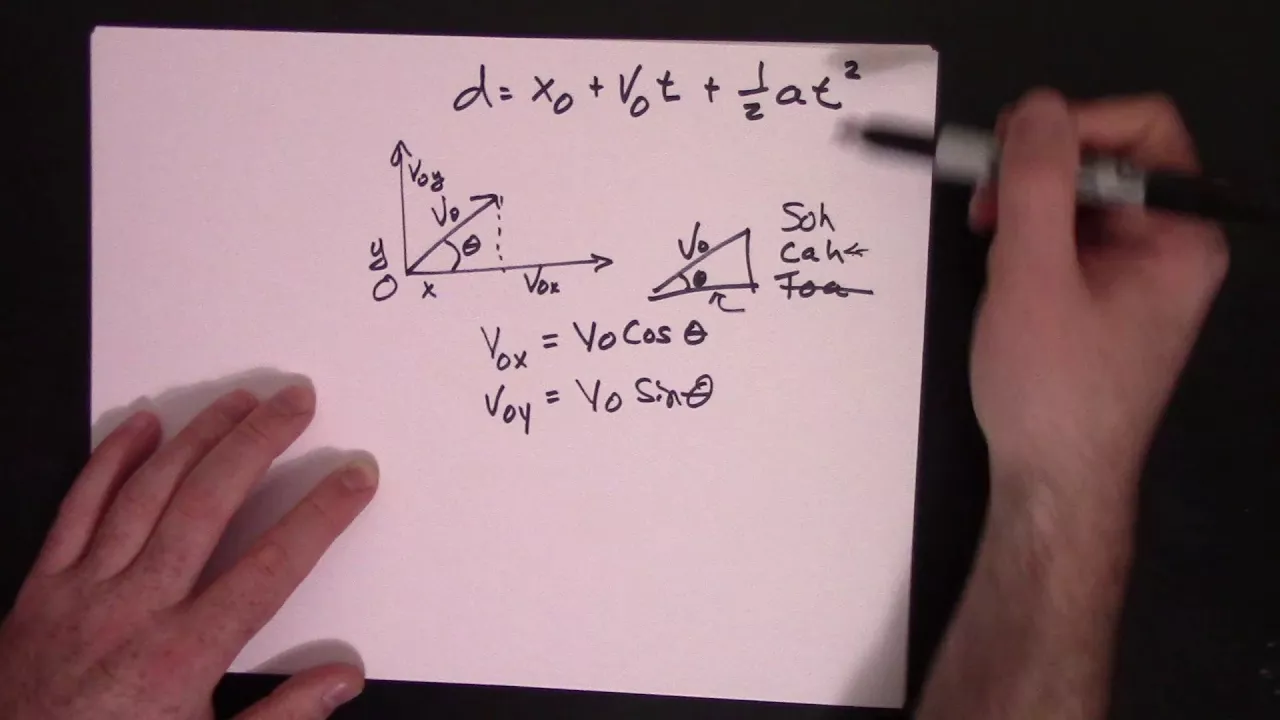 d = x₀ + V₀t + ½at²
V₀y
V₀
θ
y
O
x
V₀x
V₀
θ
Soh
Cah
Toa
V₀x = V₀ Cos θ
V₀y = V₀ Sin θ